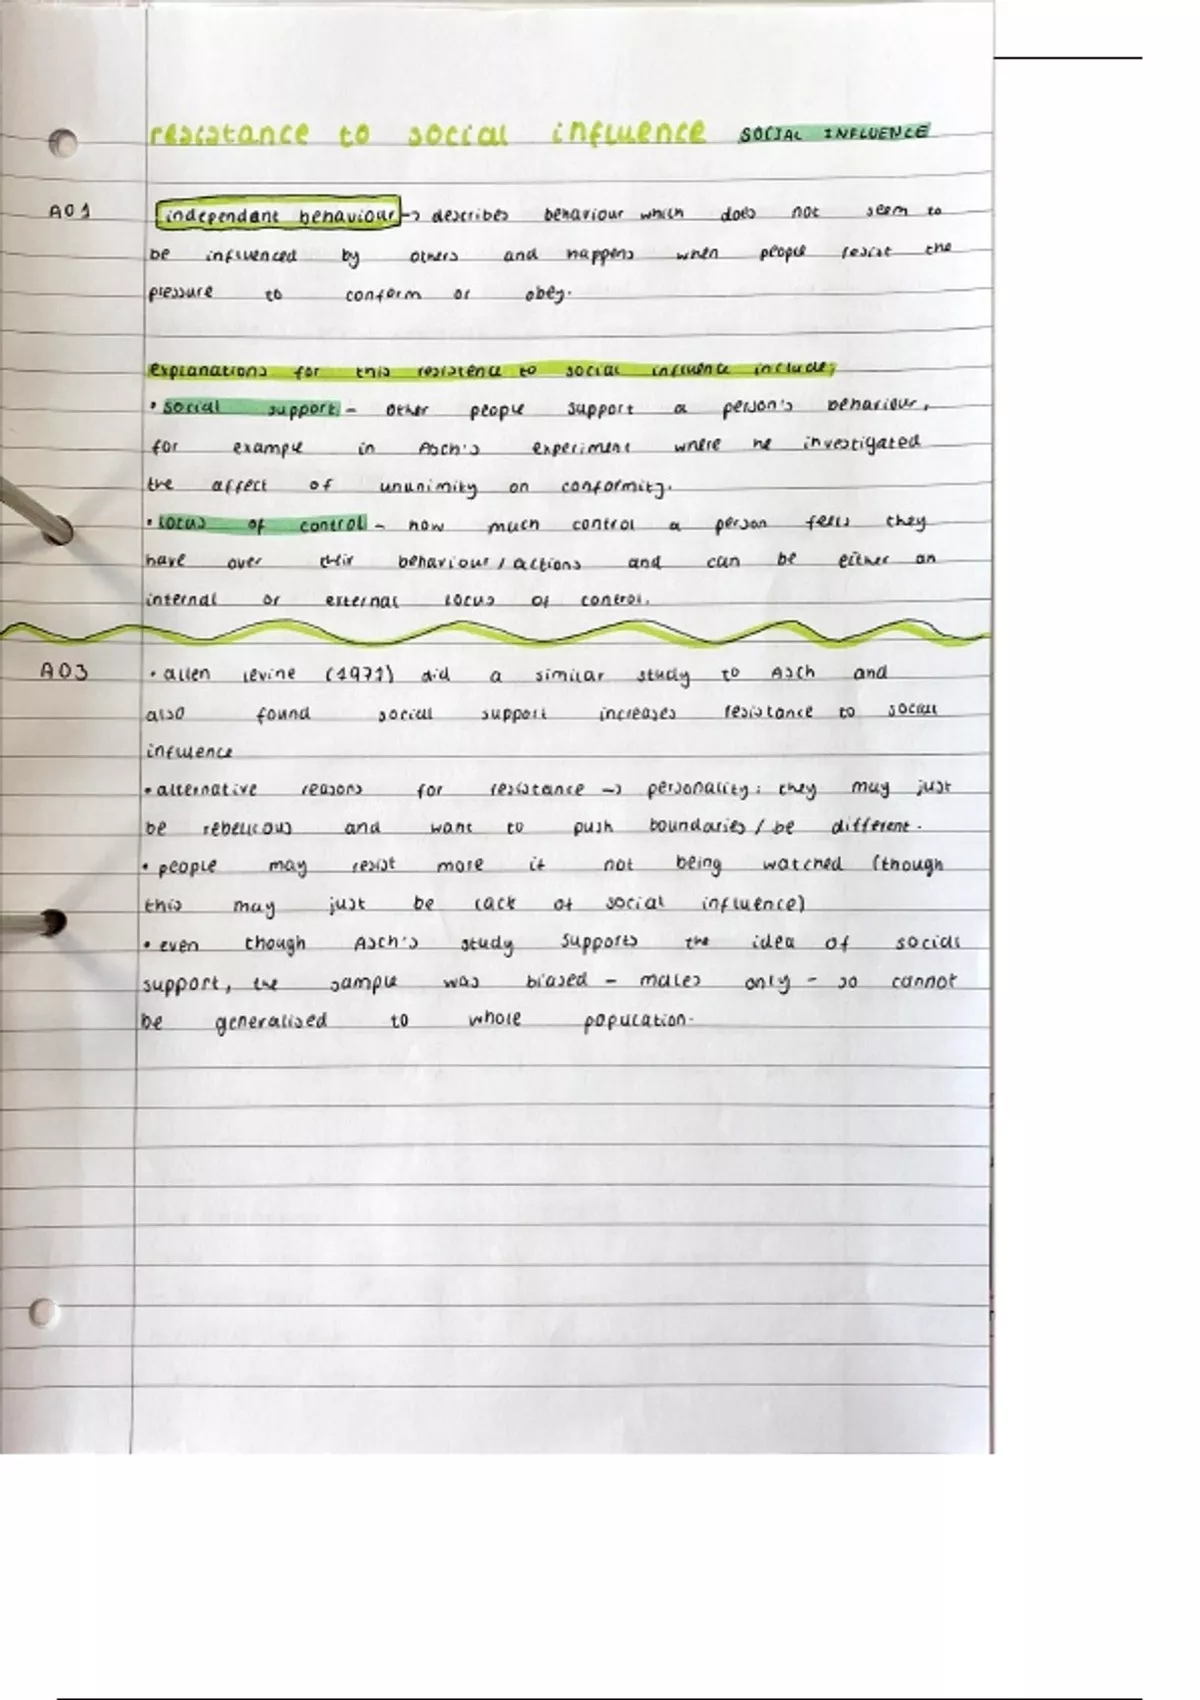 resistance to social influence SOCIAL INFLUENCE
A01 independant behaviour → describes behaviour which does not seem to
be influenced by others and happens when people resist the
pressure to conform or obey.
explanations for this resistence to social influence include;
• social support - other people support a person's behaviour,
for example in Asch's experiment where he investigated
the affect of ununimity on conformity.
• locus of control - how much control a person feels they
have over their behaviour / actions and can be either an
internal or external locus of control.
A03 • allen levine (1971) did a similar study to Asch and
also found social support increases resistance to social
influence
• alternative reasons for resistance → personality; they may just
be rebellious and want to push boundaries / be different.
• people may resist more if not being watched (though
this may just be lack of social influence)
• even though Asch's study supports the idea of social
support, the sample was biased - males only - so cannot
be generalised to whole population.